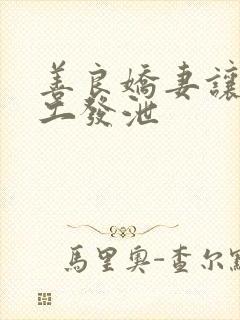 善良嬌妻讓
工發泄
馬里奧-查尔